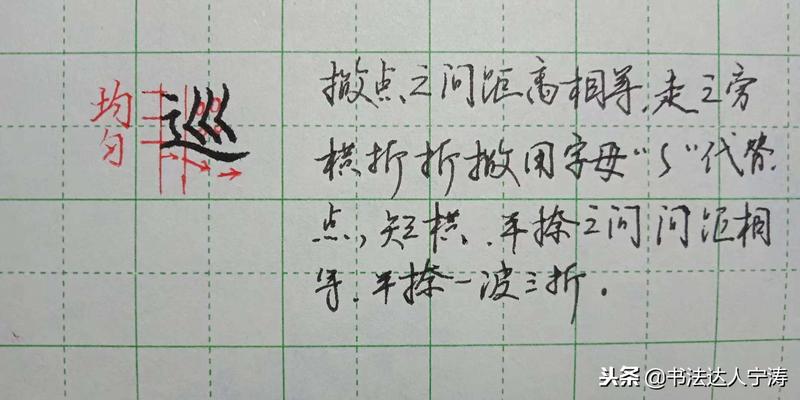 均匀
巡
撇点之间距离相等,走之旁
横折折撇用字母“S”代替.
点、短横、平捺之间间距相
等.平捺一波三折.
头条 @书法达人宁涛